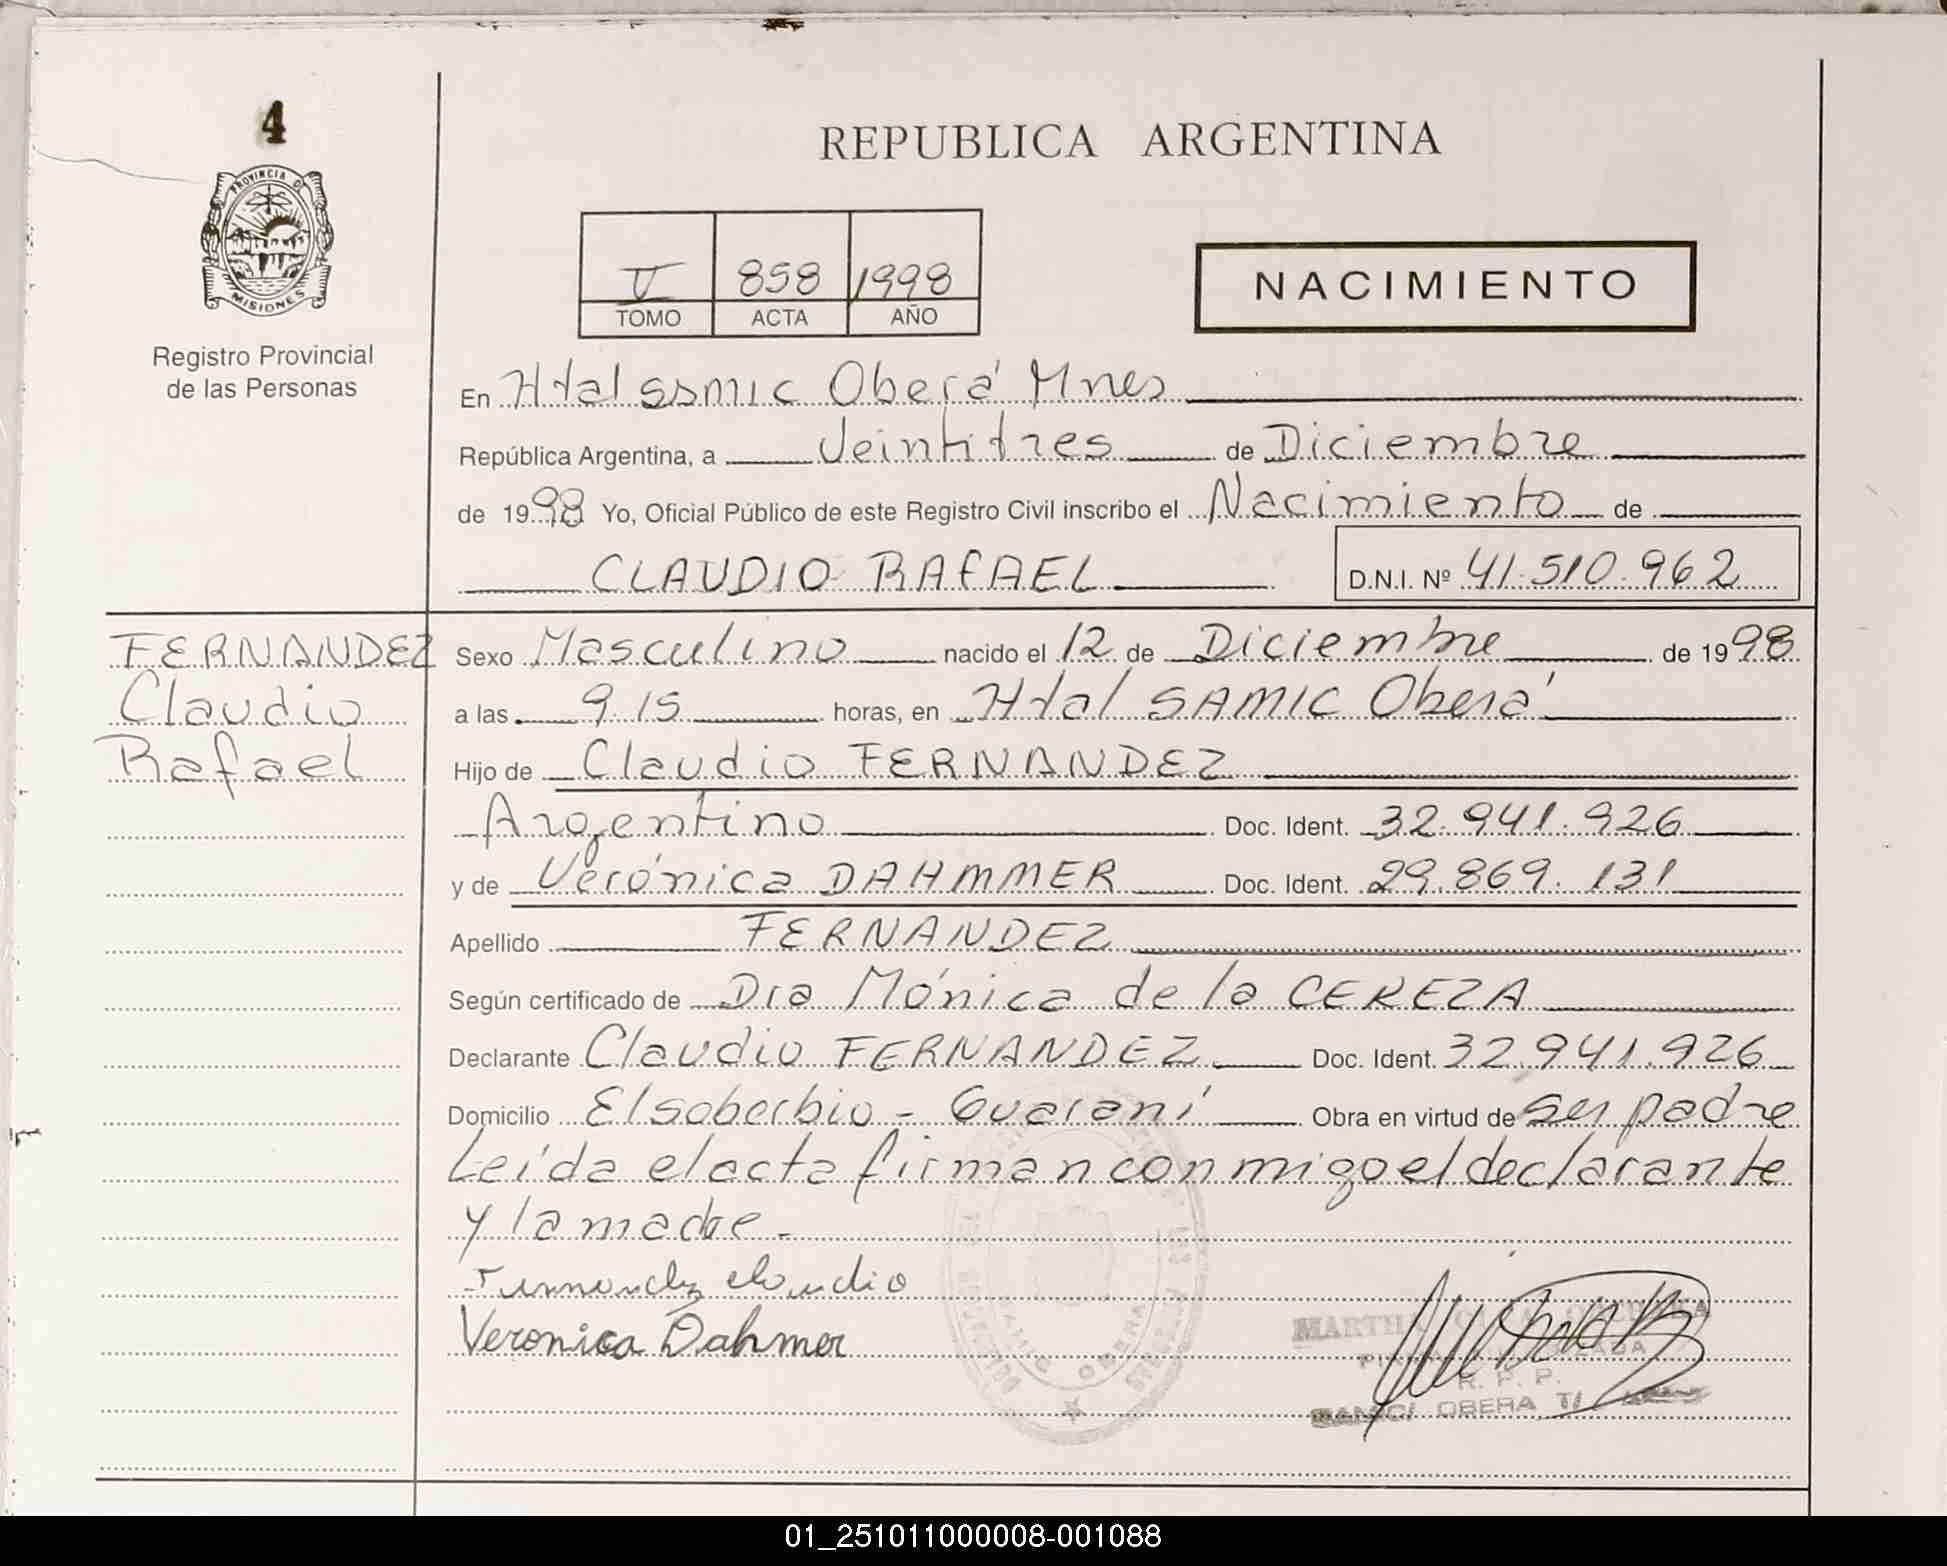 4
REPUBLICA ARGENTINA
PROVINCIA D
MISIONES
Registro Provincial
de las Personas
V 858 1998
TOMO ACTA AÑO
NACIMIENTO
En Htal SSMIC Oberá Mnes
República Argentina, a Veintitres de Diciembre
de 1998 Yo, Oficial Público de este Registro Civil inscribo el Nacimiento de
CLAUDIO RAFAEL D.N.I. Nº 41.510.962
FERNANDEZ
Claudio
Rafael
Sexo Masculino nacido el 12 de Diciembre de 1998
a las 9.15 horas, en Htal SAMIC Oberá
Hijo de Claudio FERNANDEZ
Argentino Doc. Ident. 32.941.926
y de Verónica DAHMMER Doc. Ident. 29.869.131
Apellido FERNANDEZ
Según certificado de Dra Mónica de la CEREZA
Declarante Claudio FERNANDEZ Doc. Ident. 32.941.926
Domicilio Elsoberbio - Guaraní Obra en virtud de ser padre
Leída el acta firman conmigo el declarante
y la madre.-
Fernandez claudio
Veronica Dahmer
MARTHA
R. P. P.
SAMIC/ OBERA
SAMIC OBERA
01_251011000008-001088